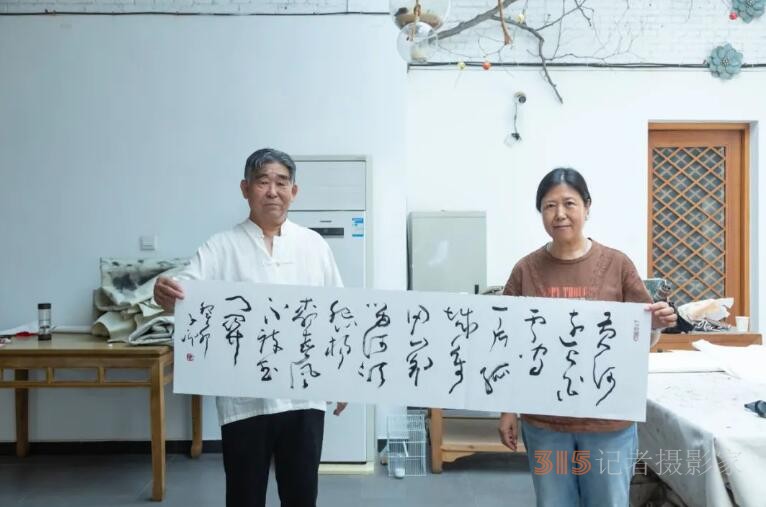 黄河
远上白
云间
一片孤
城万
仞山羌
笛何须
怨杨
柳春风
不度玉
门关
315记者摄影家